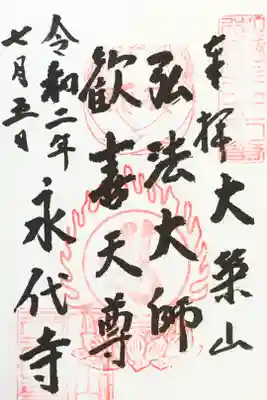 奉拝
大築山
弘法大師
歓喜天尊
永代寺
令和二年
七月五日